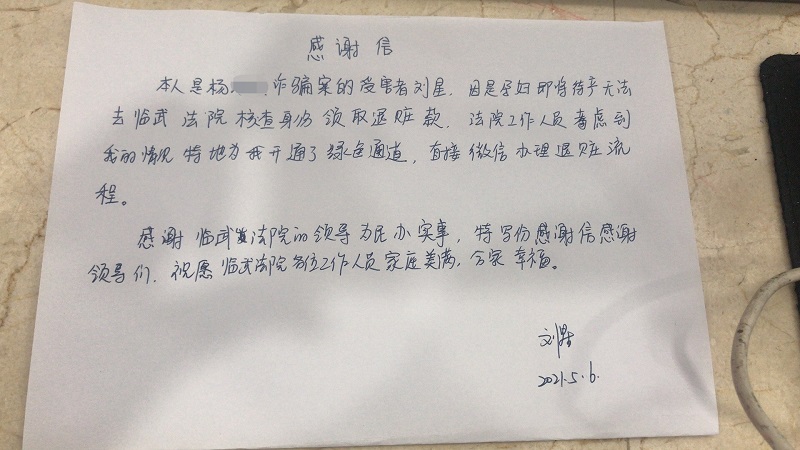 感谢信
本人是杨 诈骗案的受害者刘星，因是孕妇即将待产无法
去临武法院核查身份领取退赃款，法院工作人员考虑到
我的情况特地为我开通了绿色通道，直接微信办理退赃流
程。
感谢临武法院的领导为民办实事，特写份感谢信感谢
领导们，祝愿临武法院各位工作人员家庭美满，合家幸福。
刘星
2021.5.6.